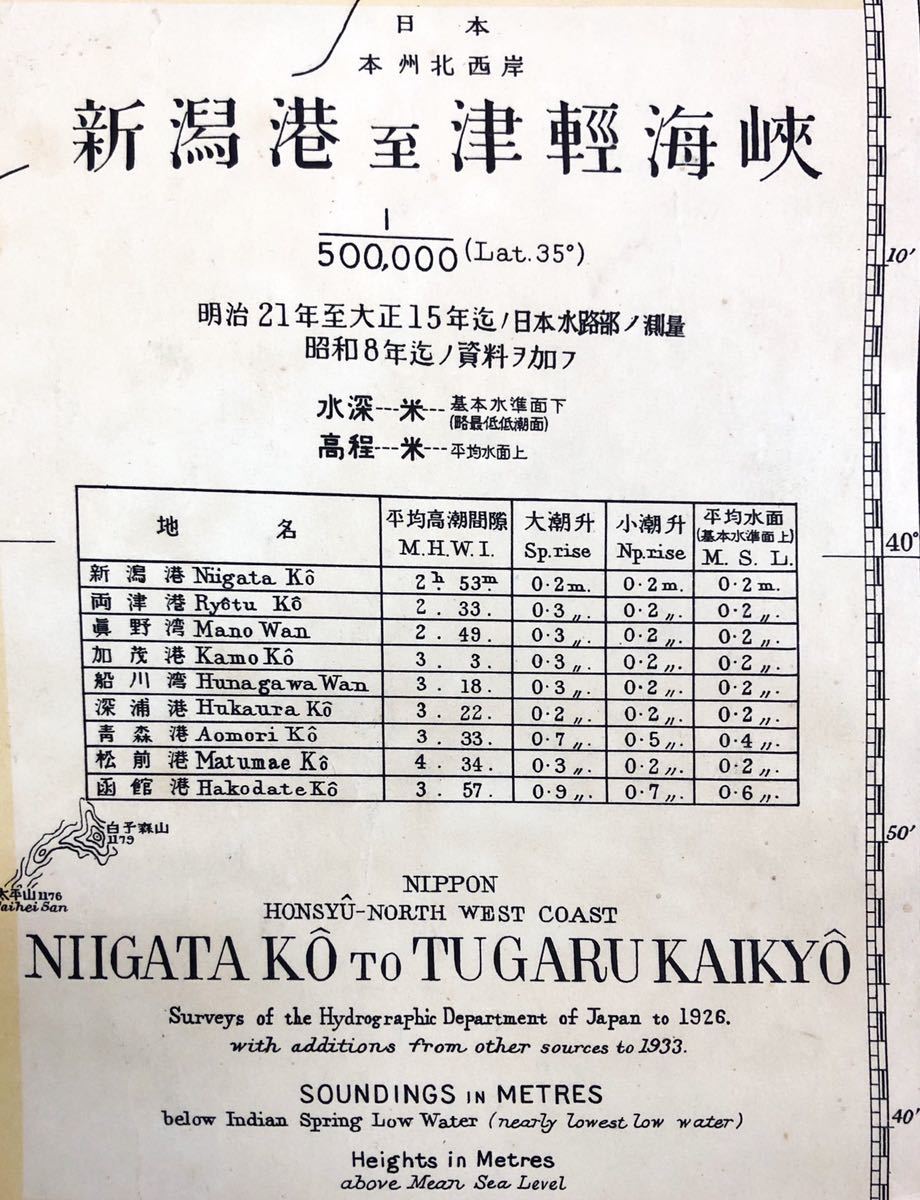 日本
本州北西岸
新潟港至津輕海峽
1
500,000 (Lat. 35°)
10'
明治21年至大正15年迄ノ日本水路部ノ測量
昭和8年迄ノ資料ヲ加フ
水深---米---基本水準面下
(略最低低潮面)
高程---米---平均水面上
地名 平均高潮間隙 大潮升 小潮升 平均水面
(基本水準面上)
M. H. W. I. Sp. rise Np. rise M. S. L.
40°
新潟港 Niigata Kô 2h. 53m. 0·2m. 0·2m. 0·2m.
両津港 Ryôtu Kô 2. 33. 0·3〃. 0·2〃. 0·2〃.
眞野湾 Mano Wan 2. 49. 0·3〃. 0·2〃. 0·2〃.
加茂港 Kamo Kô 3. 3. 0·3〃. 0·2〃. 0·2〃.
船川湾 Hunagawa Wan 3. 18. 0·3〃. 0·2〃. 0·2〃.
深浦港 Hukaura Kô 3. 22. 0·2〃. 0·2〃. 0·2〃.
青森港 Aomori Kô 3. 33. 0·7〃. 0·5〃. 0·4〃.
松前港 Matumae Kô 4. 34. 0·3〃. 0·2〃. 0·2〃.
函館港 Hakodate Kô 3. 57. 0·9〃. 0·7〃. 0·6〃.
白子森山
1179
50'
太平山 1176
aihei San
NIPPON
HONSYÛ-NORTH WEST COAST
NIIGATA KÔ TO TUGARU KAIKYÔ
Surveys of the Hydrographic Department of Japan to 1926.
with additions from other sources to 1933.
SOUNDINGS IN METRES
below Indian Spring Low Water (nearly lowest low water)
40'
Heights in Metres
above Mean Sea Level